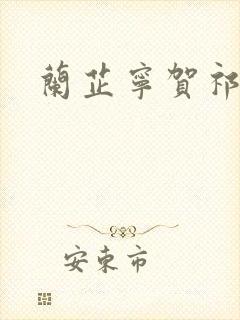 蘭芷寧賀祁
安東市